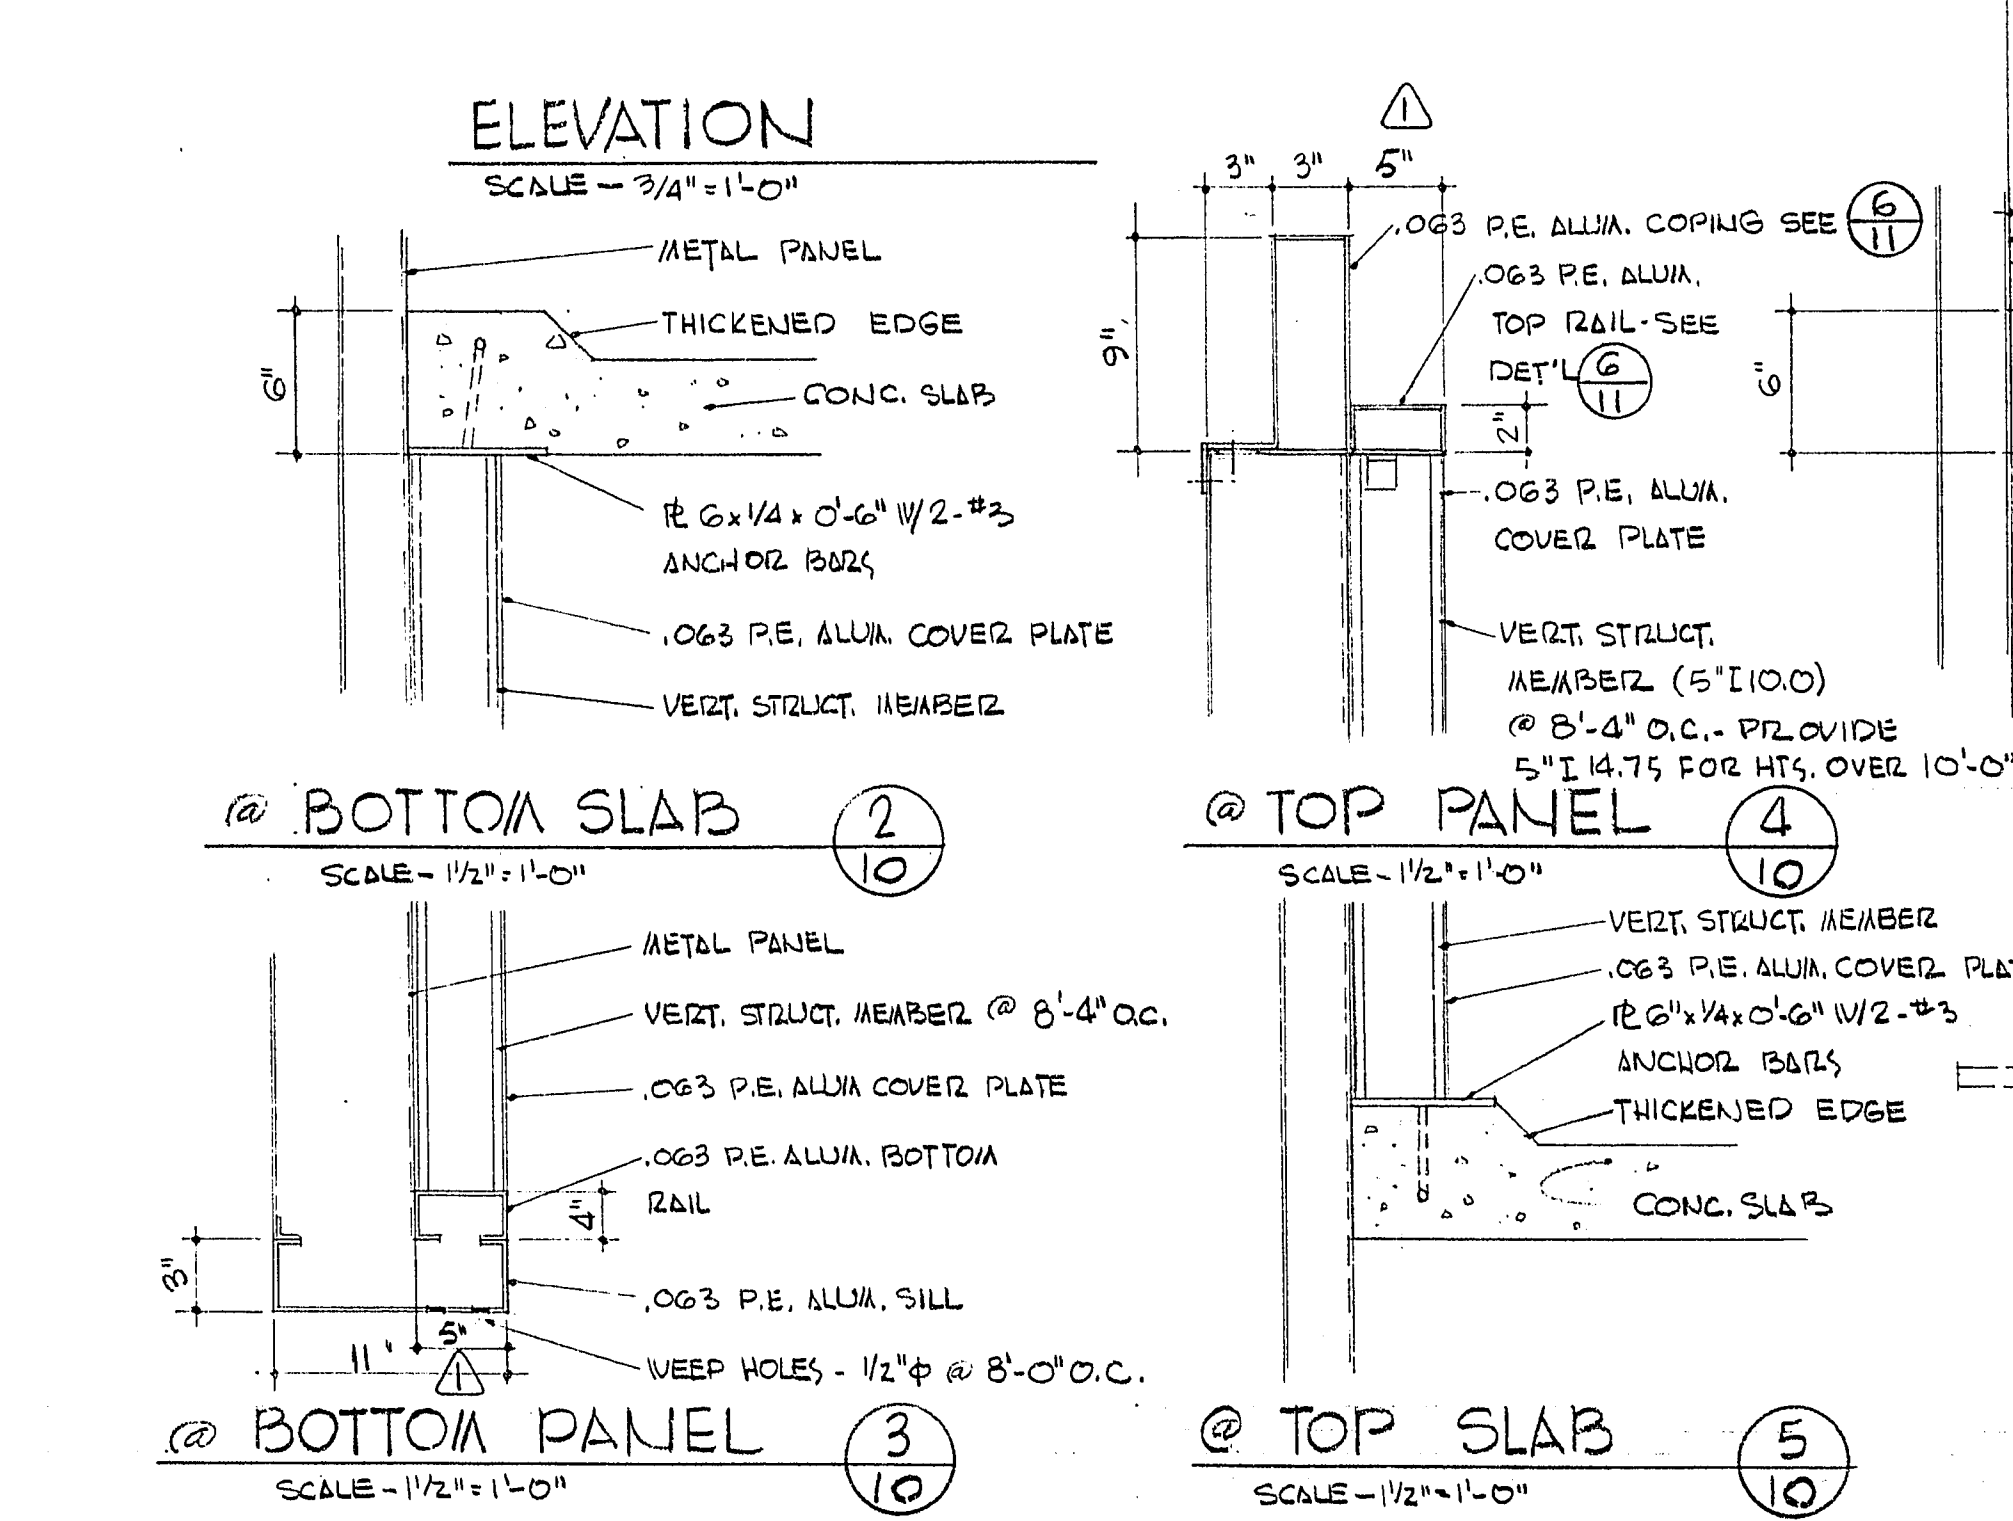 ELEVATION
SCALE - 3/4" = 1'-0"
METAL PANEL
THICKENED EDGE
6"
CONC. SLAB
PL 6 x 1/4 x 0'-6" W/2-#3
ANCHOR BARS
.063 P.E. ALUM. COVER PLATE
VERT. STRUCT. MEMBER
@ BOTTOM SLAB
2
10
SCALE - 1 1/2" = 1'-0"
1
3" 3" 5"
.063 P.E. ALUM. COPING SEE
6
11
.063 P.E. ALUM.
TOP RAIL-SEE
DET'L
6
11
9"
2"
6"
.063 P.E. ALUM.
COVER PLATE
VERT. STRUCT.
MEMBER (5" I 10.0)
@ 8'-4" O.C. - PROVIDE
5" I 14.75 FOR HTS. OVER 10'-0"
@ TOP PANEL
4
10
SCALE - 1 1/2" = 1'-0"
METAL PANEL
VERT. STRUCT. MEMBER @ 8'-4" O.C.
.063 P.E. ALUM COVER PLATE
.063 P.E. ALUM. BOTTOM
RAIL
4"
3"
.063 P.E. ALUM. SILL
5"
11"
1
WEEP HOLES - 1/2"ϕ @ 8'-0" O.C.
@ BOTTOM PANEL
3
10
SCALE - 1 1/2" = 1'-0"
VERT. STRUCT. MEMBER
.063 P.E. ALUM. COVER PLA
PL 6" x 1/4 x 0'-6" W/2-#3
ANCHOR BARS
THICKENED EDGE
CONC. SLAB
@ TOP SLAB
5
10
SCALE - 1 1/2" = 1'-0"